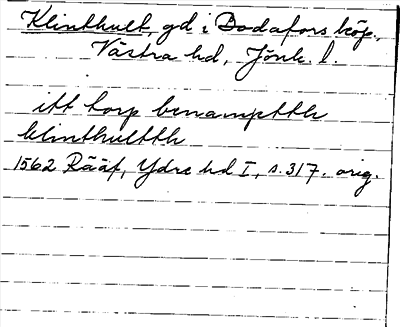 Klinthult, gd i Bodafors köp.,
Västra hd, Jönk. l.
itt torp benampttth
klinthultth
1562 Rääf, Ydre hd I, s. 317. orig.